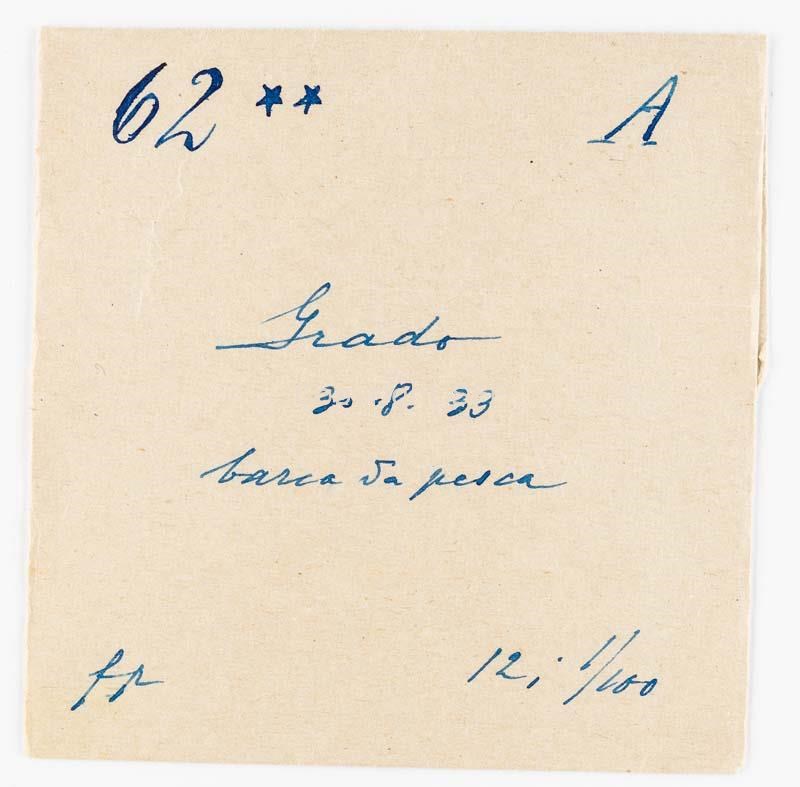 62 ** A
Grado
30.8.33
barca da pesca
fp 12; 1/100